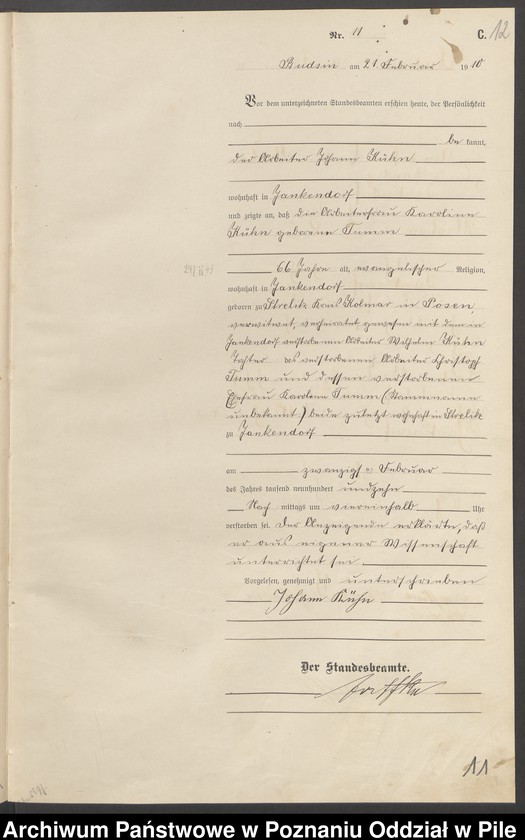 Nr. 11
C. 12
Budsin am 21 Februar 1910
Vor dem unterzeichneten Standesbeamten erschien heute, der Persönlichkeit
nach
be kannt,
der Arbeiter Johann Kühn
wohnhaft in Jankendorf
und zeigte an, daß die Arbeiterfrau Karoline
Kühn geborene Tumm
66 Jahre alt, evangelischer Religion,
wohnhaft in Jankendorf
geboren zu Strelitz Kreis Kolmar in Posen,
verwitwet, verheiratet gewesen mit dem in
Jankendorf verstorbenen Arbeiter Wilhelm Kühn
Tochter des verstorbenen Arbeiter Christoph
Tumm und dessen verstorbenen
Ehefrau Karoline Tumm (Stammname
unbekannt) beide zuletzt wohnhaft in Strelitz
zu Jankendorf
am zwanzigsten Februar
des Jahres tausend neunhundert undzehn
Nach mittags um viereinhalb Uhr
verstorben sei. Der Anzeigende erklärte, daß
er aus eigener Wissenschaft
unterrichtet sei
Vorgelesen, genehmigt und unterschrieben
Johann Kühn
Der Standesbeamte.
11
Archiwum Państwowe w Poznaniu Oddział w Pile